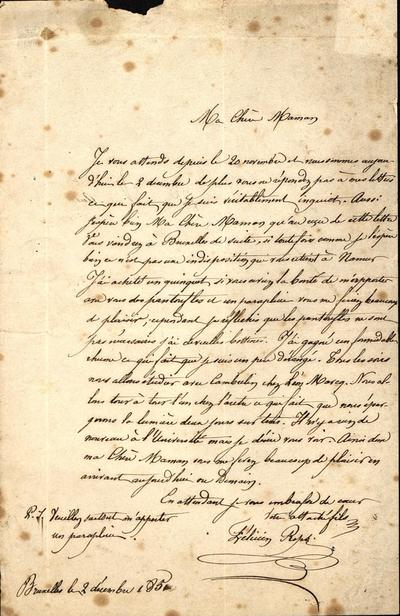 Ma Chère Maman
Je vous attends depuis le 20 novembre et nous sommes aujour
d'hui le 2 décembre de plus vous ne répondez pas à mes lettres
ce qui fait que je suis véritablement inquiet. Aussi
j'espère bien Ma Chère Maman qu'au reçu de cette lettre
vous viendrez à Bruxelles de suite, si toutefois comme je l'espère
bien ce n'est pas une indisposition qui vous retient à Namur
J'ai acheté un quinquet, si vous aviez la bonté de m'apporter
une paire de pantoufles et un parapluie vous me feriez beaucoup
de plaisir, cependant je réfléchis que les pantoufles ne sont
pas nécessaires j'ai de vieilles bottines. J'ai gagné un formidable
rhume ce qui fait que je suis un peu dérangé. Tous les soirs
nous allons étudier avec Cambulin chez Léon Marcq. Nous al
lons tour à tour l'un chez l'autre ce qui fait que nous épar
gnons la lumière deux jours sur trois. Il n'y a rien de
nouveau à l'Université mais je désire vous voir. Ainsi donc
ma Chère Maman vous me feriez beaucoup de plaisir en
arrivant aujourd'hui ou Demain.
En attendant je vous embrasse de cœur
Votre attaché fils
Félicien Rops
P.S. Veuillez surtout m'apporter
un parapluie.
Bruxelles le 2 décembre 1851